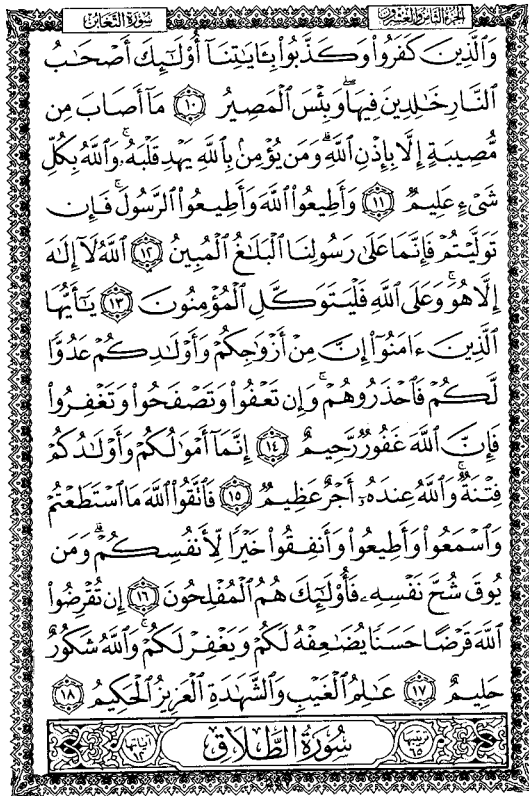 الجزء الثامن والعشرون
سورة التغابن
وَالَّذِينَ كَفَرُوا۟ وَكَذَّبُوا۟ بِـَٔايَـٰتِنَآ أُو۟لَـٰٓئِكَ أَصْحَـٰبُ
ٱلنَّارِ خَـٰلِدِينَ فِيهَا ۖ وَبِئْسَ ٱلْمَصِيرُ ١٠ مَآ أَصَابَ مِن
مُّصِيبَةٍ إِلَّا بِإِذْنِ ٱللَّهِ ۗ وَمَن يُؤْمِنۢ بِٱللَّهِ يَهْدِ قَلْبَهُۥ ۚ وَٱللَّهُ بِكُلِّ
شَىْءٍ عَلِيمٌ ١١ وَأَطِيعُوا۟ ٱللَّهَ وَأَطِيعُوا۟ ٱلرَّسُولَ ۚ فَإِن
تَوَلَّيْتُمْ فَإِنَّمَا عَلَىٰ رَسُولِنَا ٱلْبَلَـٰغُ ٱلْمُبِينُ ١٢ ٱللَّهُ لَآ إِلَـٰهَ
إِلَّا هُوَ ۚ وَعَلَى ٱللَّهِ فَلْيَتَوَكَّلِ ٱلْمُؤْمِنُونَ ١٣ يَـٰٓأَيُّهَا
ٱلَّذِينَ ءَامَنُوٓا۟ إِنَّ مِنْ أَزْوَٰجِكُمْ وَأَوْلَـٰدِكُمْ عَدُوًّا
لَّكُمْ فَٱحْذَرُوهُمْ ۚ وَإِن تَعْفُوا۟ وَتَصْفَحُوا۟ وَتَغْفِرُوا۟
فَإِنَّ ٱللَّهَ غَفُورٌ رَّحِيمٌ ١٤ إِنَّمَآ أَمْوَٰلُكُمْ وَأَوْلَـٰدُكُمْ
فِتْنَةٌ ۚ وَٱللَّهُ عِندَهُۥٓ أَجْرٌ عَظِيمٌ ١٥ فَٱتَّقُوا۟ ٱللَّهَ مَا ٱسْتَطَعْتُمْ
وَٱسْمَعُوا۟ وَأَطِيعُوا۟ وَأَنفِقُوا۟ خَيْرًا لِّأَنفُسِكُمْ ۗ وَمَن
يُوقَ شُحَّ نَفْسِهِۦ فَأُو۟لَـٰٓئِكَ هُمُ ٱلْمُفْلِحُونَ ١٦ إِن تُقْرِضُوا۟
ٱللَّهَ قَرْضًا حَسَنًا يُضَـٰعِفْهُ لَكُمْ وَيَغْفِرْ لَكُمْ ۚ وَٱللَّهُ شَكُورٌ
حَلِيمٌ ١٧ عَـٰلِمُ ٱلْغَيْبِ وَٱلشَّهَـٰدَةِ ٱلْعَزِيزُ ٱلْحَكِيمُ ١٨
ترتيبها ٦٥ سُورَةُ الطَّلَاقِ آياتها ١٢